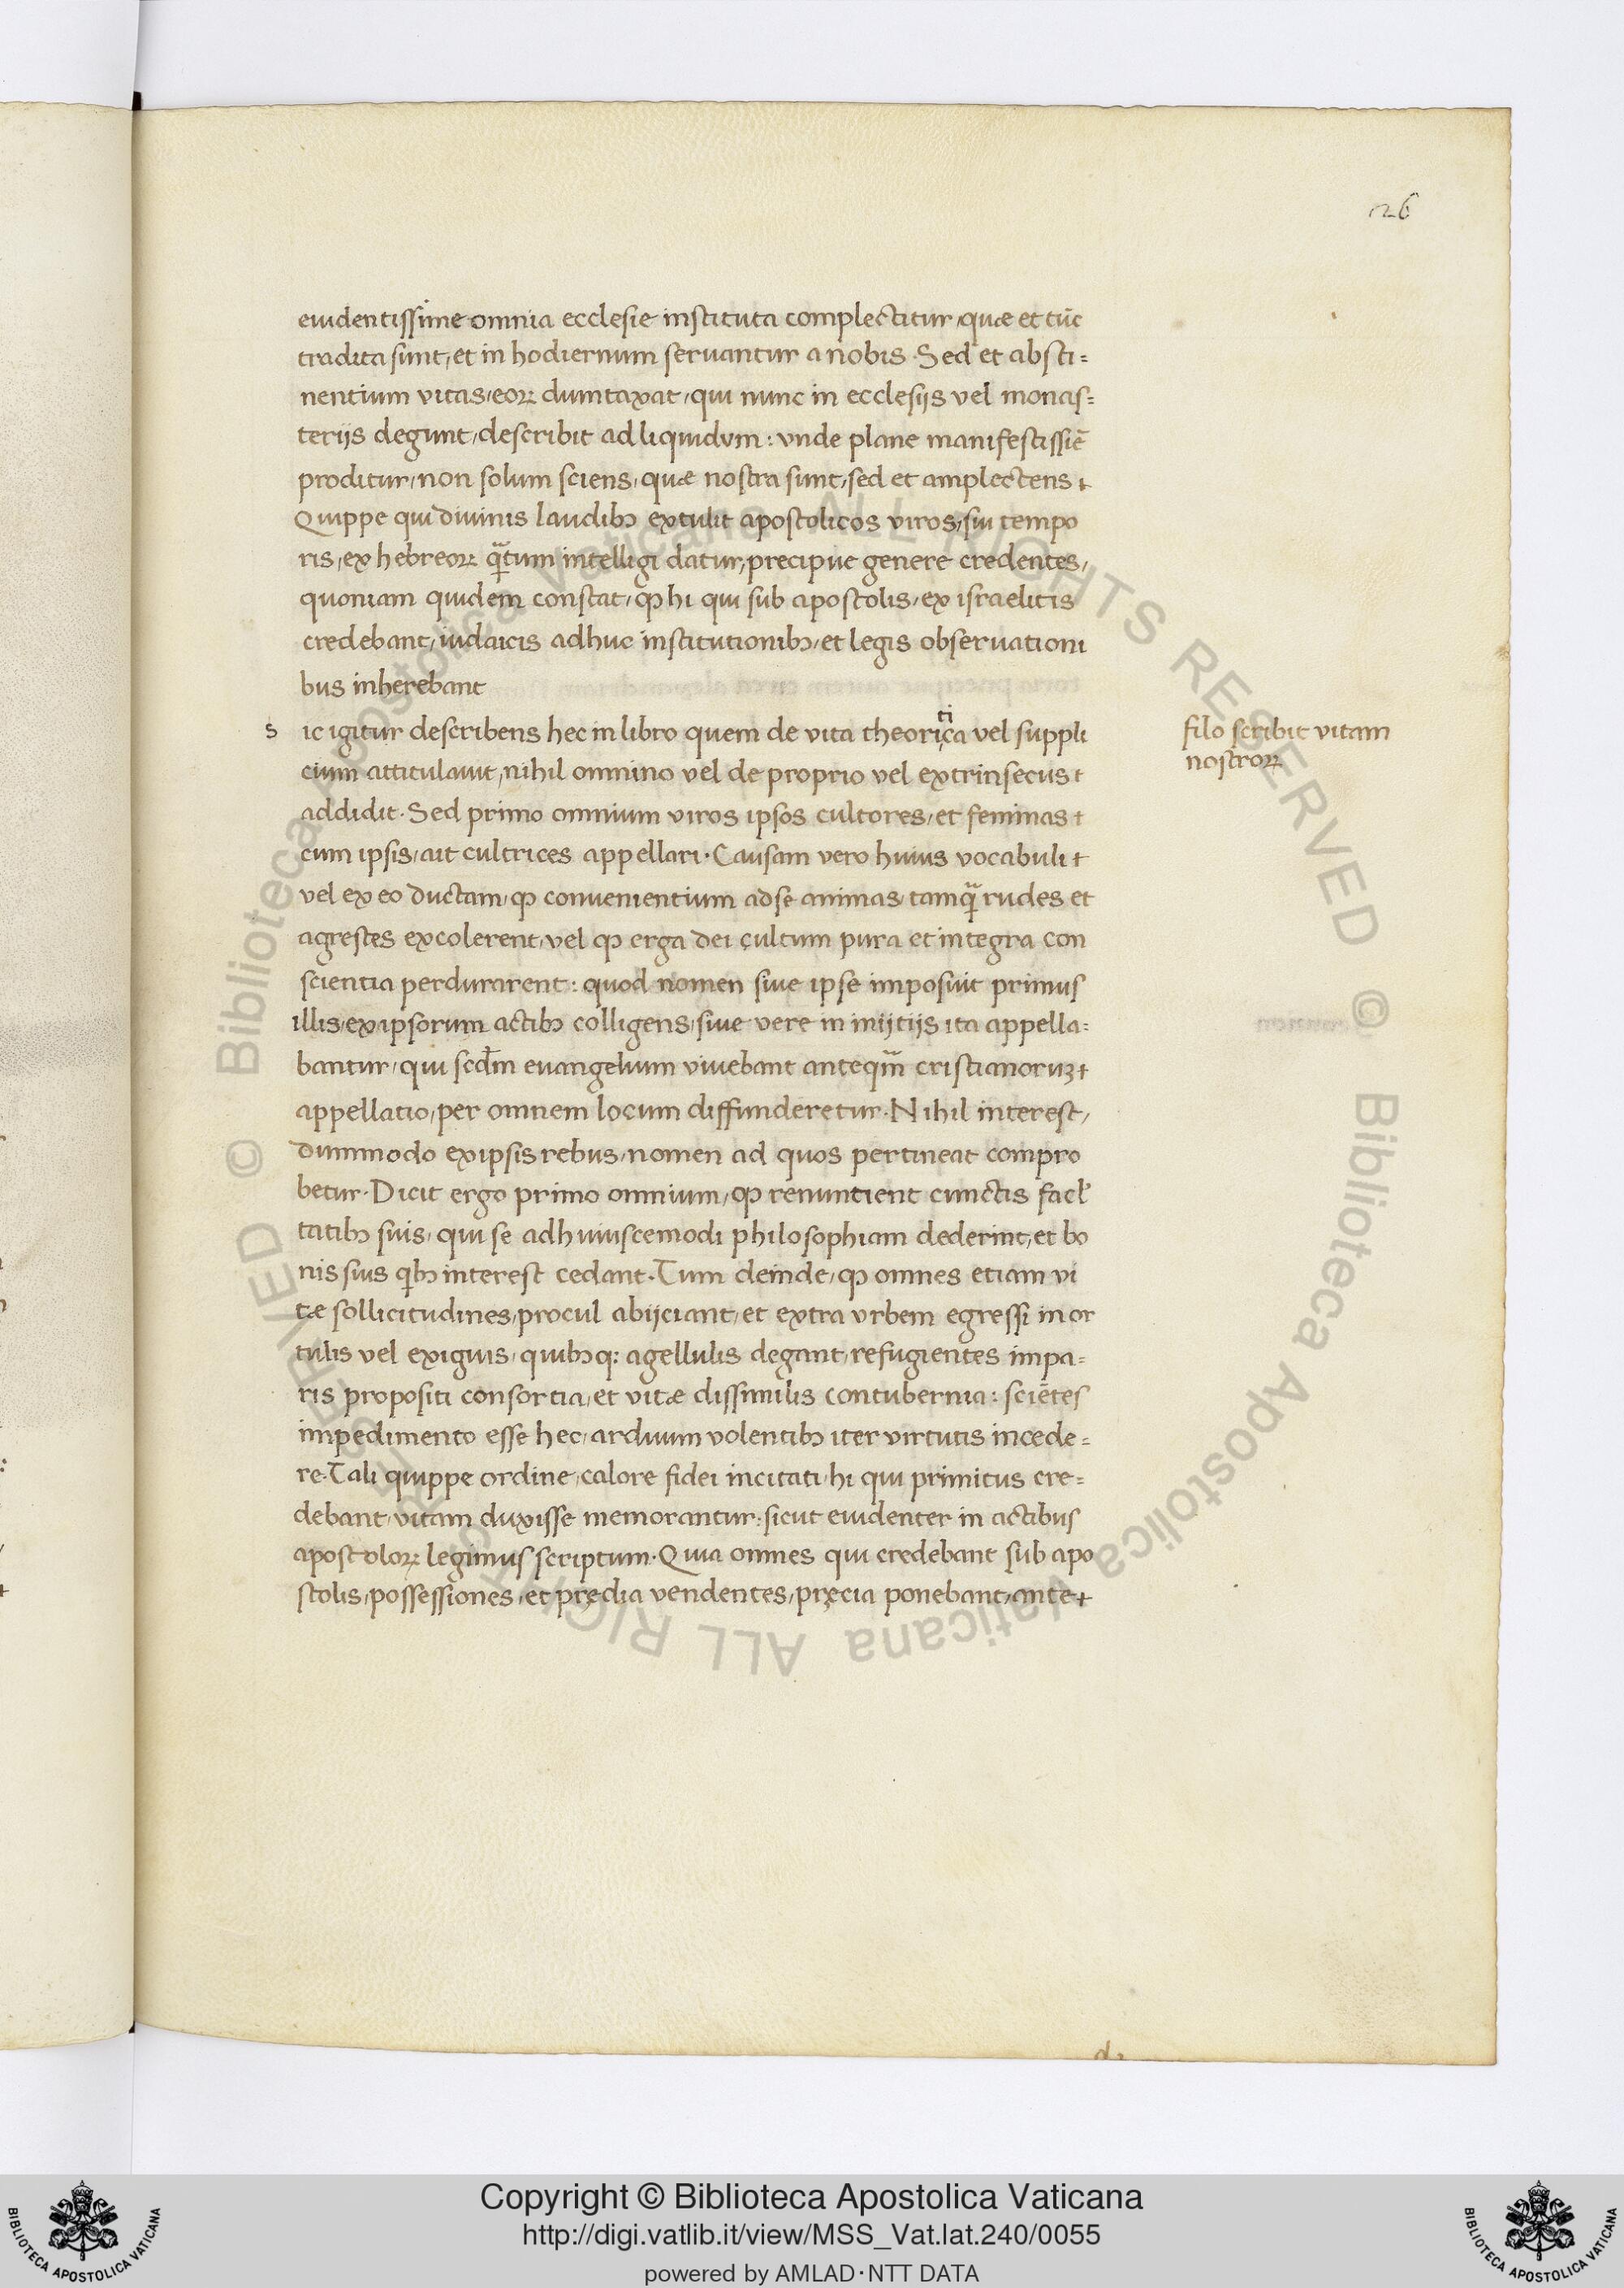 26
euidentissime omnia ecclesie instituta complectitur, quæ et tūc
tradita sunt, et in hodiernum seruantur a nobis. Sed et absti=
nentium vitas, eoꝝ dumtaxat, qui nunc in ecclesijs vel monas=
terijs degunt, describit ad liquidum: vnde plane manifestissiē
proditur, non solum sciens, quæ nostra sunt, sed et amplectens
Quippe qui diuinis laudibꝫ extulit apostolicos viros, sui tempo
ris, ex hebreoꝝ qᷓtum intelligi datur, precipue genere credentes,
quoniam quidem constat, ꝙ hi qui sub apostolis, ex israelitis
credebant, iudaicis adhuc institutionibꝫ, et legis obseruationi
bus inherebant
s ic igitur describens hec in libro quem de vita theoriticа vel suppli
filo scribit vitam
nostroꝝ
cium attitulauit, nihil omnino vel de proprio vel extrinsecus
addidit. Sed primo omnium viros ipsos cultores, et feminas
cum ipsis, ait cultrices appellari. Causam vero huius vocabuli
vel ex eo ductam, ꝙ conuenientium ad se animas, tamqᷓ rudes et
agrestes excolerent, vel ꝙ erga dei cultum pura et integra con
scientia perdurarent: quod nomen siue ipse imposuit primus
illis, ex ipsorum actibꝫ colligens, siue vere in inijtijs ita appella=
bantur, qui scd̄m euangelium viuebant anteqm̄ cristianoruꝫ
appellatio, per omnem locum diffunderetur. Nihil interest,
dummodo ex ipsis rebus, nomen ad quos pertineat compro
betur. Dicit ergo primo omnium, ꝙ renuntient cunctis facl̓
tatibꝫ suis, qui se ad huiuscemodi philosophiam dederint, et bo
nis suis qibꝫ interest cedant. Tum deinde, ꝙ omnes etiam vi
tæ sollicitudines, procul abijciant, et extra vrbem egressi in or
tulis vel exiguis, quibꝫq: agellulis degant, refugientes impa=
ris propositi consortia, et vitæ dissimilis contubernia: sciētes
impedimento esse hec, arduum volentibꝫ iter virtutis incede=
re. Tali quippe ordine, calore fidei incitati, hi qui primitus cre=
debant, vitam duxisse memorantur: sicut euidenter in actibus
apostoloꝝ legimus scriptum. Quia omnes qui credebant sub apo
stolis, possessiones, et prędia vendentes, pręcia ponebant, ante
Copyright © Biblioteca Apostolica Vaticana
http://digi.vatlib.it/view/MSS_Vat.lat.240/0055
powered by AMLAD·NTT DATA